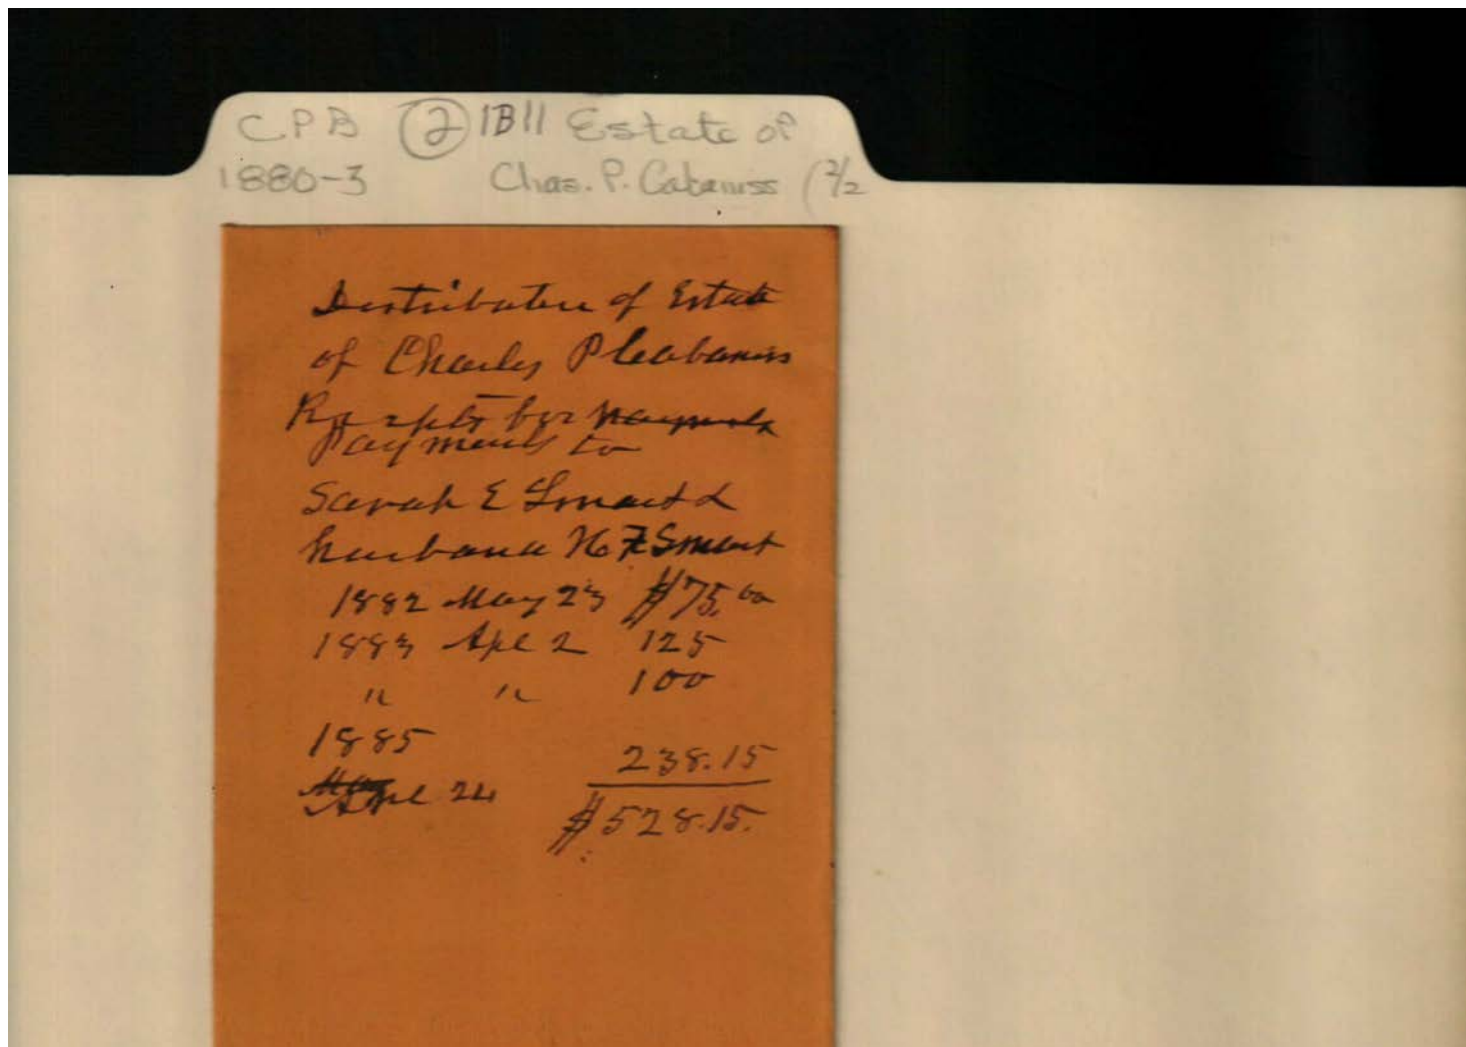 CPB ② 1B11 Estate of
1880-3 Chas. P. Cabaniss (2/2
Distribution of Estate
of Charles P Cabaniss
Receipts for
Payments to
Sarah E Smart &
husband H F Smart
1882 May 23 $75.00
1883 Apl 2 125
" " 100
1885
238.15
Apl 24
$528.15.